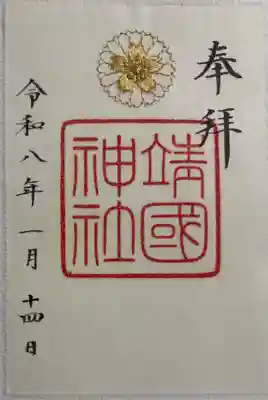 奉拝
靖國
神社
令和八年一月十四日